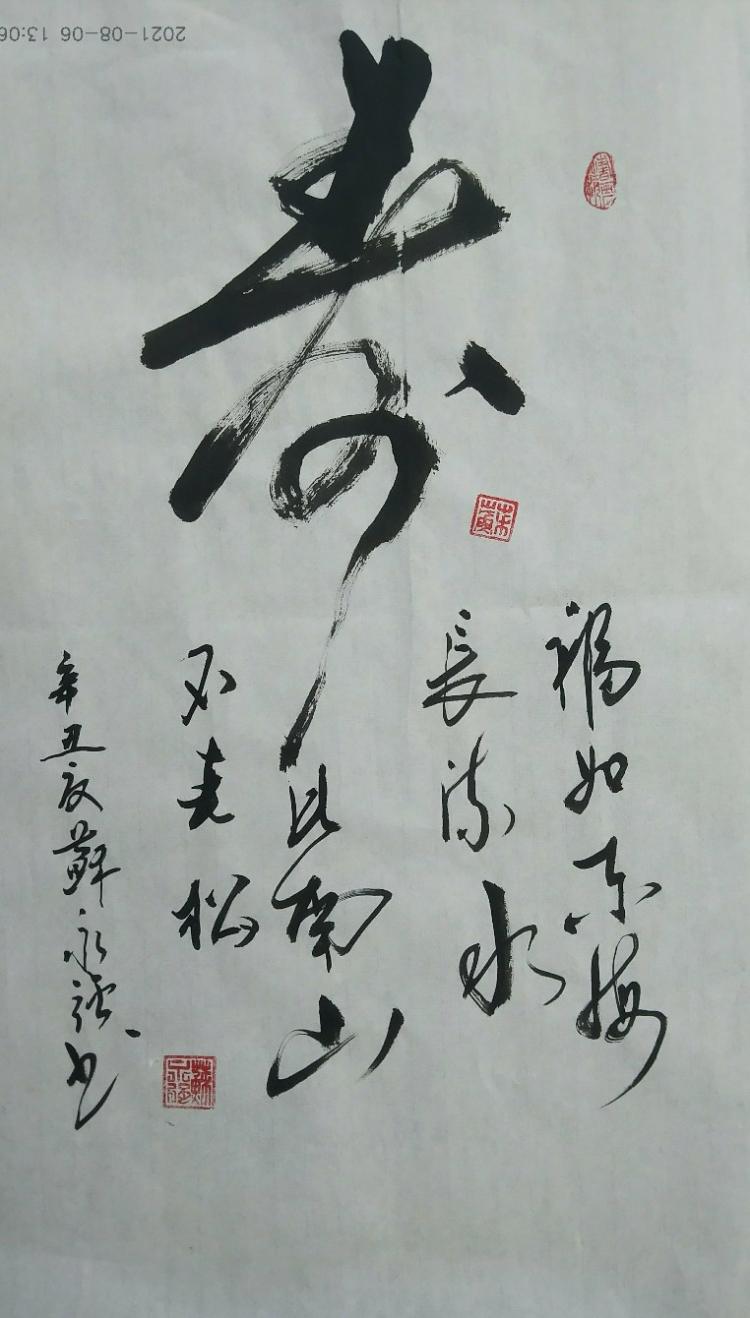 2021-08-06 13:06
寿
福如东海
長流水
比南山
不老松
辛丑夏蘇永书